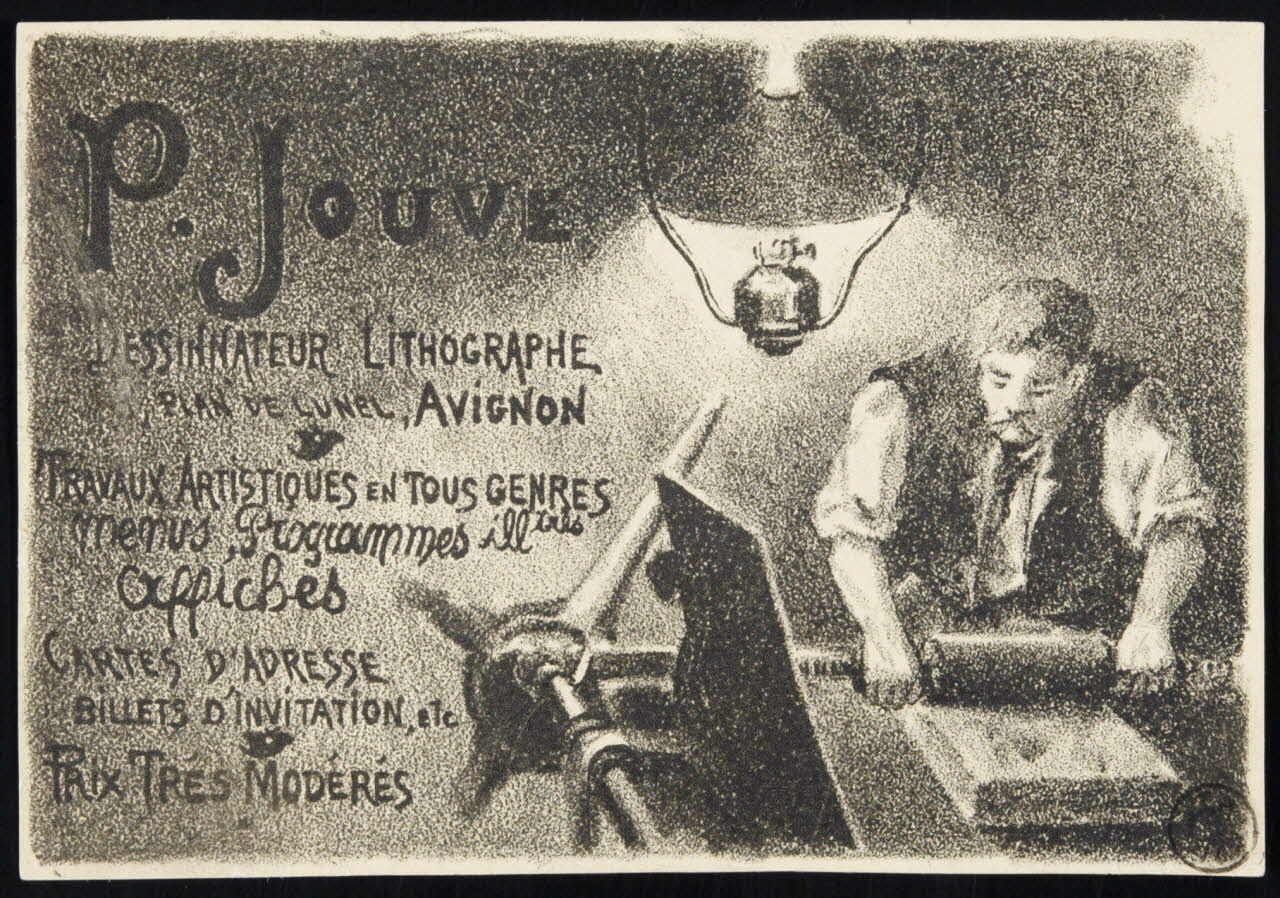 P. JOUVE
DESSINNATEUR LITHOGRAPHE
, PLAN DE LUNEL, AVIGNON
TRAVAUX ARTISTIQUES EN TOUS GENRES
menus, Programmes illtrés
affiches
CARTES D'ADRESSE
BILLETS D'INVITATION, etc
PRIX TRÉS MODÉRÉS